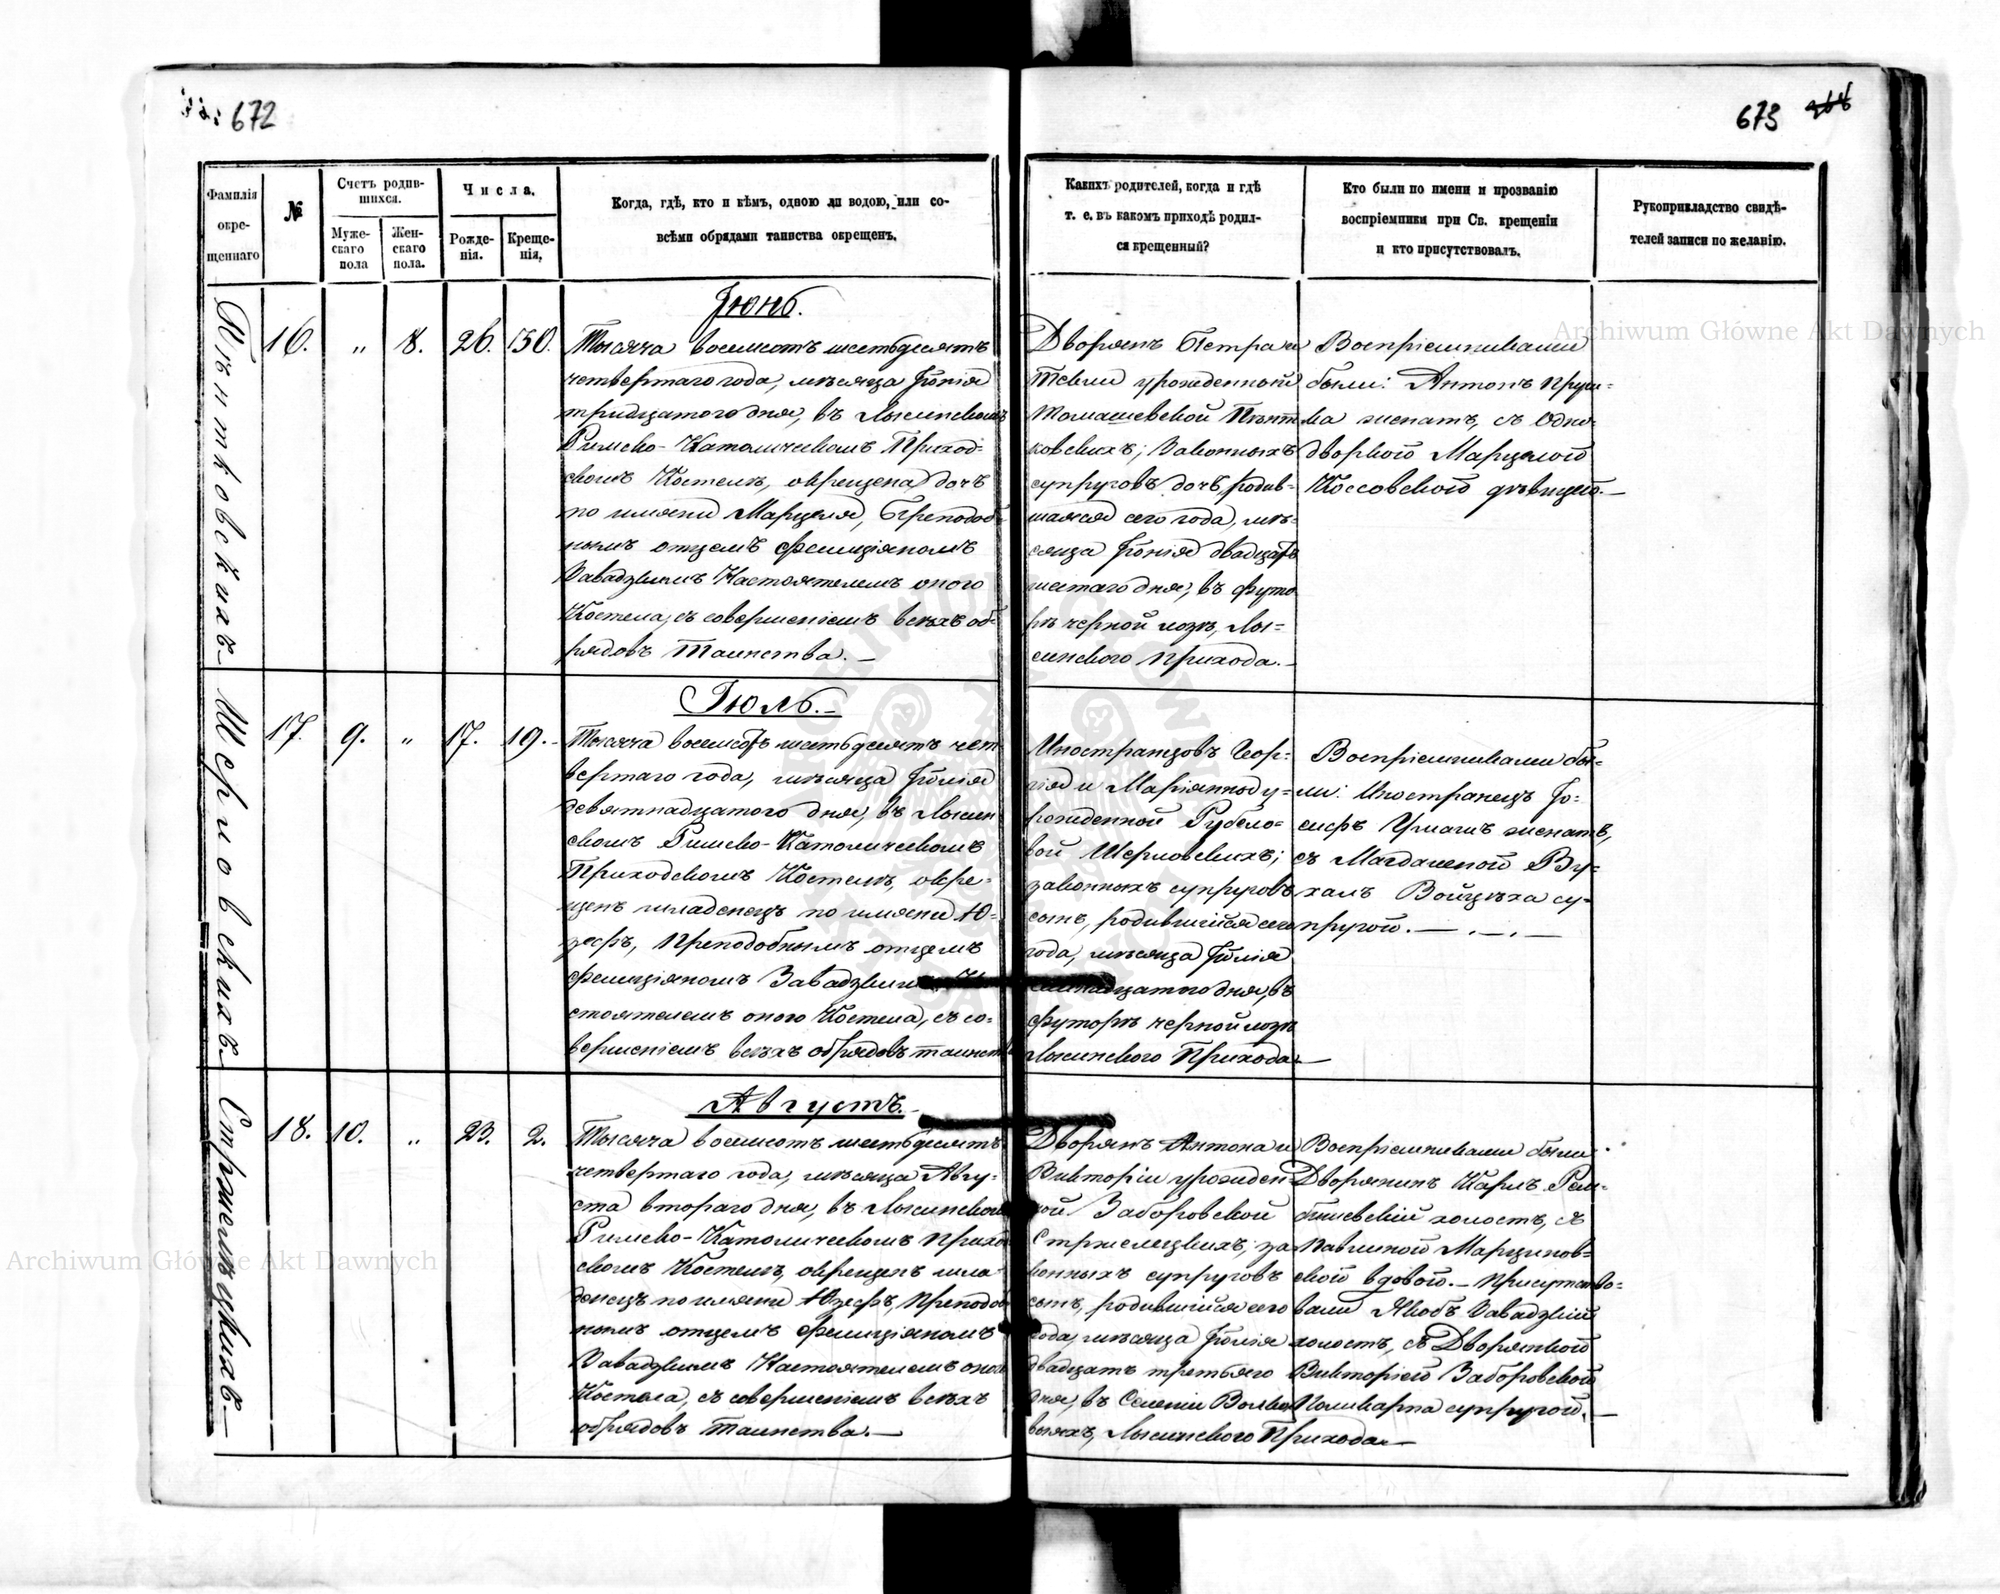 672
673
Фамилія окре- щеннаго
№
Счетъ родив- шихся.
Муже- скаго пола
Жен- скаго пола.
Числа.
Рожде- нія.
Креще- нія,
Когда, гдѣ, кто и кѣмъ, одною ли водою, или со-
всѣми обрядами таинства окрещенъ.
Какихъ родителей, когда и гдѣ
т. е. въ какомъ приходѣ родил-
ся крещенный?
Кто были по имени и прозванію
воспріемники при Св. крещеніи
и кто присутствовалъ.
Рукоприкладство свидѣ-
телей записи по желанію.
Пѣнтковскихъ.
16. „ 8. 26. 30.
Іюнь.
Тысяча восемсотъ шестьдесятъ
четвертаго года, мѣсяца Іюнія
тридцатого дня, въ Лысинскомъ
Римско-Католическомъ Приход-
скомъ Костелѣ, окрещена дочъ
по имяни Марцеля, Преподоб-
нымъ отцемъ Фелиціяномъ
Завадзкимъ Настоятелемъ оного
Костела, съ совершеніемъ всѣхъ об-
рядовъ Таинства.—
Дворянъ Петра и
Теклі урожденной
Томашевской Пѣнт-
ковскихъ; Законныхъ
супруговъ дочь, родив-
шаяся сего года, мѣ-
сяца Іюнія двадцать
шестаго дня, въ футо-
рѣ черной лозѣ, Лы-
синского Прихода.—
Воспріемниками
были: Антонъ
женатъ, съ Одно-
дворкой Марцелой
Коссовской дѣвицей.—
Шерловскихъ.
17. 9. „ 17. 19.
Іюль.—
Тысяча восемсотъ шестьдесятъ чет-
вертаго года, мѣсяца Іюлія
девятнадцатого дня, въ Лысин-
скомъ Римско-Католическомъ
Приходскомъ Костелѣ, окре-
щенъ младенецъ по имяни Ю-
зефъ, Преподобнымъ отцемъ
Фелиціяномъ Завадзкимъ На-
стоятелемъ оного Костела, съ со-
вершеніемъ всѣхъ обрядовъ таинства
Иностранцовъ Геор-
гія и Маріянны у-
рожденной
Шерловскихъ;
законныхъ супруговъ
сынъ, родившійся сего
года, мѣсяца Іюлія
семнадцатого дня, въ
футорѣ черной лозѣ
Лысинского Прихода—
Воспріемниками бы-
ли: Иностранецъ Іо-
сифъ женатъ,
съ Магдаленой Ву-
халъ Войцѣха су-
пругой.—
Стржелѣцкихъ.—
18. 10. „ 23. 2.
Августъ.—
Тысяча восемсотъ шестьдесятъ
четвертаго года, мѣсяца Авгу-
ста второго дня, въ Лысинскомъ
Римско-Католическомъ Приход-
скомъ Костелѣ, окрещенъ мла-
денецъ по имяни Юзефъ, Преподоб-
нымъ отцемъ Фелиціяномъ
Завадзкимъ Настоятелемъ оного
Костела, съ совершеніемъ всѣхъ
обрядовъ Таинства.—
Дворянъ Антона и
Викторіи урожден-
ной Заборовской
Стржелецкихъ; за-
конныхъ супруговъ
сынъ, родившійся сего
года, мѣсяца Іюлія
двадцать третьяго
дня, въ Селеніи
Лысинского Прихода—
Воспріемниками были:
Дворянинъ Карлъ Рем-
бишевскій холостъ, съ
Павлиной Марцинов-
ской вдовой.— Присутство-
вали Якобъ Завадзкій
холостъ, съ Дворянкой
Викторіей Заборовской
Поликарпа супругой.—
Archiwum Główne Akt Dawnych
Archiwum Główne Akt Dawnych